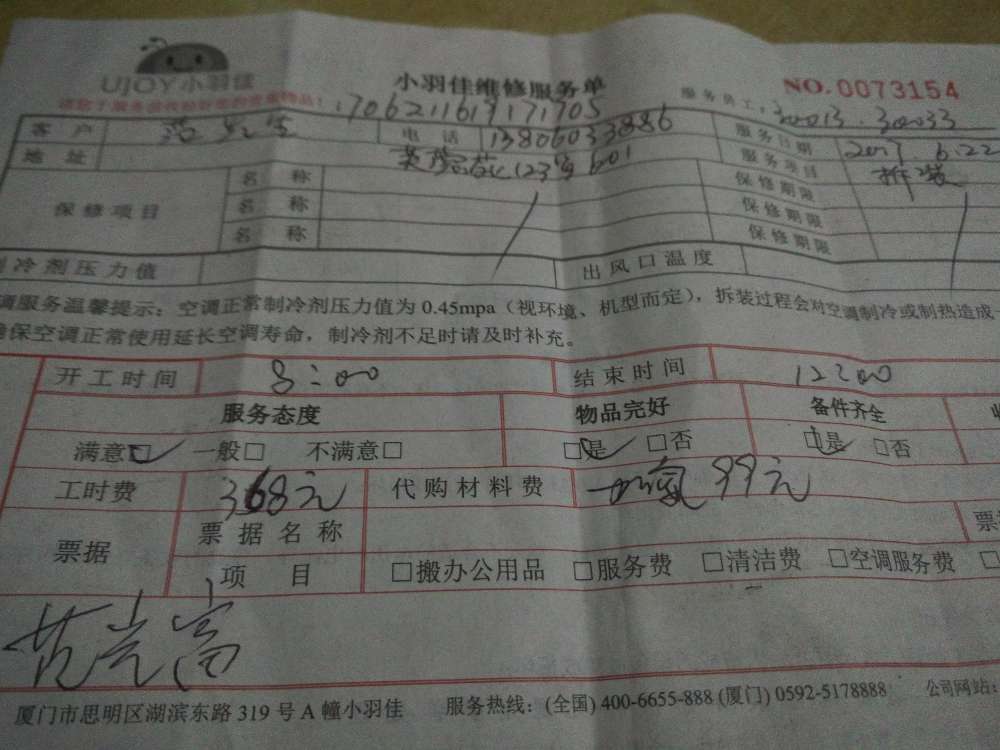 UJOY小羽佳
小羽佳维修服务单
NO.0073154
1706211619171705
服务员工: 30013.30033
客户 范先生 电话 13806033886 服务日期 2017.6.22
地址 123号601 服务项目 拆装
保修项目 名称 保修期限
名称 保修期限
名称 保修期限
制冷剂压力值 出风口温度
调服务温馨提示：空调正常制冷剂压力值为 0.45mpa（视环境、机型而定），拆装过程会对空调制冷或制热造成
确保空调正常使用延长空调寿命，制冷剂不足时请及时补充。
开工时间 8:00 结束时间 12:00
服务态度 物品完好 备件齐全
满意☑ 一般□ 不满意□ ☑是 □否 ☑是 □否
工时费 368元 代购材料费 加氟 99元
票据 票据名称
项目 □搬办公用品 □服务费 □清洁费 □空调服务费 □
厦门市思明区湖滨东路 319 号 A 幢小羽佳 服务热线：(全国) 400-6655-888 (厦门) 0592-5178888 公司网站：